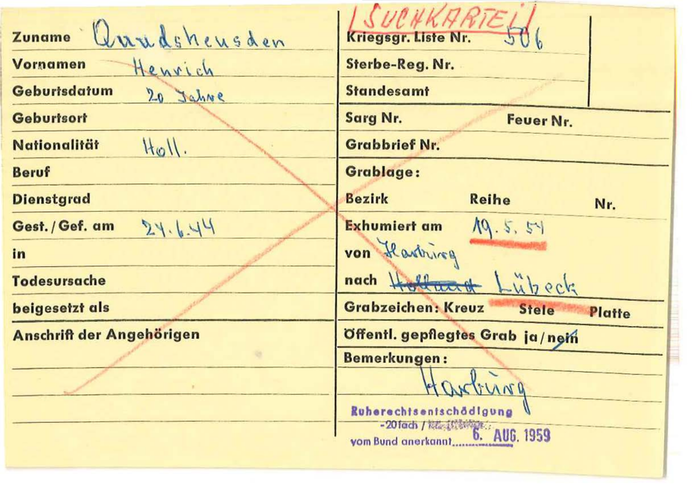 SUCHKARTEI
Zuname Quadsheusden
Vornamen Henrich
Geburtsdatum 20 Jahre
Geburtsort
Nationalität Holl.
Beruf
Dienstgrad
Gest./Gef. am 24.6.44
in
Todesursache
beigesetzt als
Anschrift der Angehörigen
Kriegsgr. Liste Nr. 506
Sterbe-Reg. Nr.
Standesamt
Sarg Nr. Feuer Nr.
Grabbrief Nr.
Grablage:
Bezirk Reihe Nr.
Exhumiert am 19.5.54
von Harburg
nach Holland Lübeck
Grabzeichen: Kreuz Stele Platte
Öffentl. gepflegtes Grab ja/nein
Bemerkungen:
Harburg
Ruherechtsentschädigung
-20fach /
vom Bund anerkannt 6. AUG. 1959